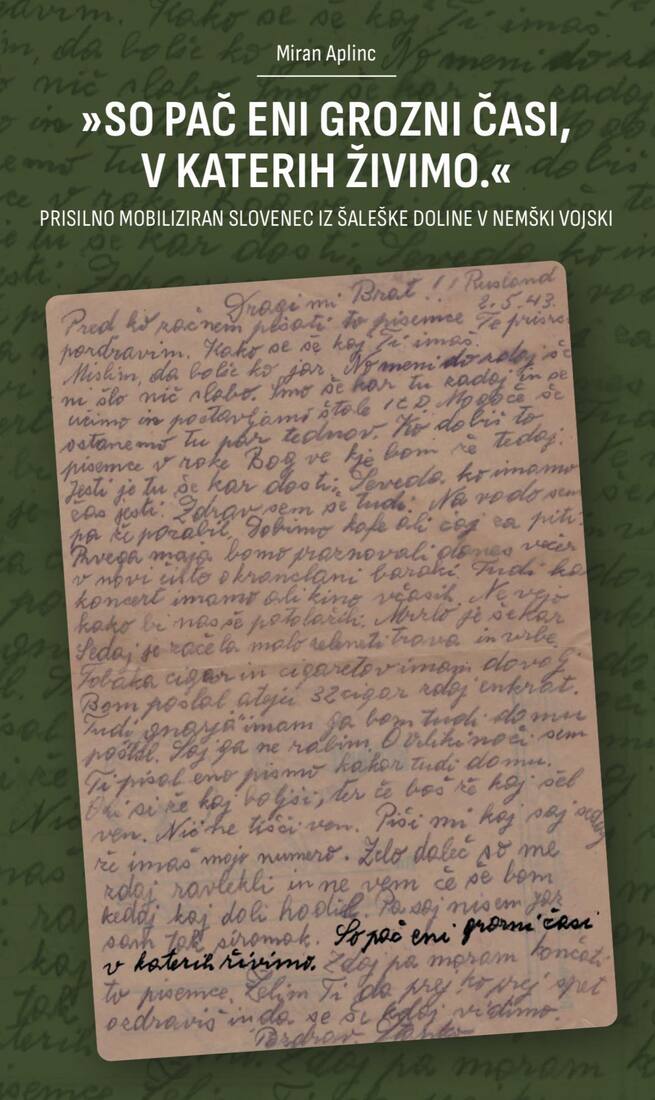 Miran Aplinc
»SO PAČ ENI GROZNI ČASI,
V KATERIH ŽIVIMO.«
PRISILNO MOBILIZIRAN SLOVENEC IZ ŠALEŠKE DOLINE V NEMŠKI VOJSKI
Dragi mi Brat!! Rusland
2.5.43.
Pred ko začnem pisati to pisemce Te prisrč
pozdravim. Kako se še kaj Ti imaš.
Mislim, da bolje ko jaz. No meni do zdaj še
ni šlo nič slabo. Smo še kar tu zadaj in se
učimo in postavljamo štale Mogoče še
ostanemo tu par tednov. Ko dobiš to
pisemce v roke Bog ve kje bom že tedaj.
Jesti je tu še kar dosti. Seveda ko imamo
čas jesti. Zdrav sem še tudi. Na vodo sem
pa že pozabil. Dobimo kafe ali čaj za piti.
Prvega maja bomo praznovali danes večer
v novi čisto okranclani baraki. Tudi
koncert imamo ali kino včasih. Ne vejo
kako bi nas še potolažili. Mrzlo je še kar
Sedaj je začela malo zeleneti trava in vrbe.
Tobaka cigar in cigaretov imam dovolj.
Bom poslal ateju 32 cigar zdaj enkrat.
Tudi gnarja imam ga bom tudi domu
poštlal. Saj ga ne rabim. O Veliki noči sem
Ti pisal eno pismo kakor tudi domu.
si že kaj boljši, ter če boš že kaj šel
ven. Nič ne tišči ven. Piši mi kaj saj
že imaš mojo numero. Zelo daleč so me
zdaj zavlekli in ne vem če še bom
kedaj kaj doli hodil. Pa saj nisem jaz
sam tak siromak. So pač eni grozni časi
v katerih živimo. Zdaj pa moram končati
to pisemce. Želim Ti da prej ko prej spet
ozdraviš in da se še kdaj vidimo.
Pozdrav Stanko